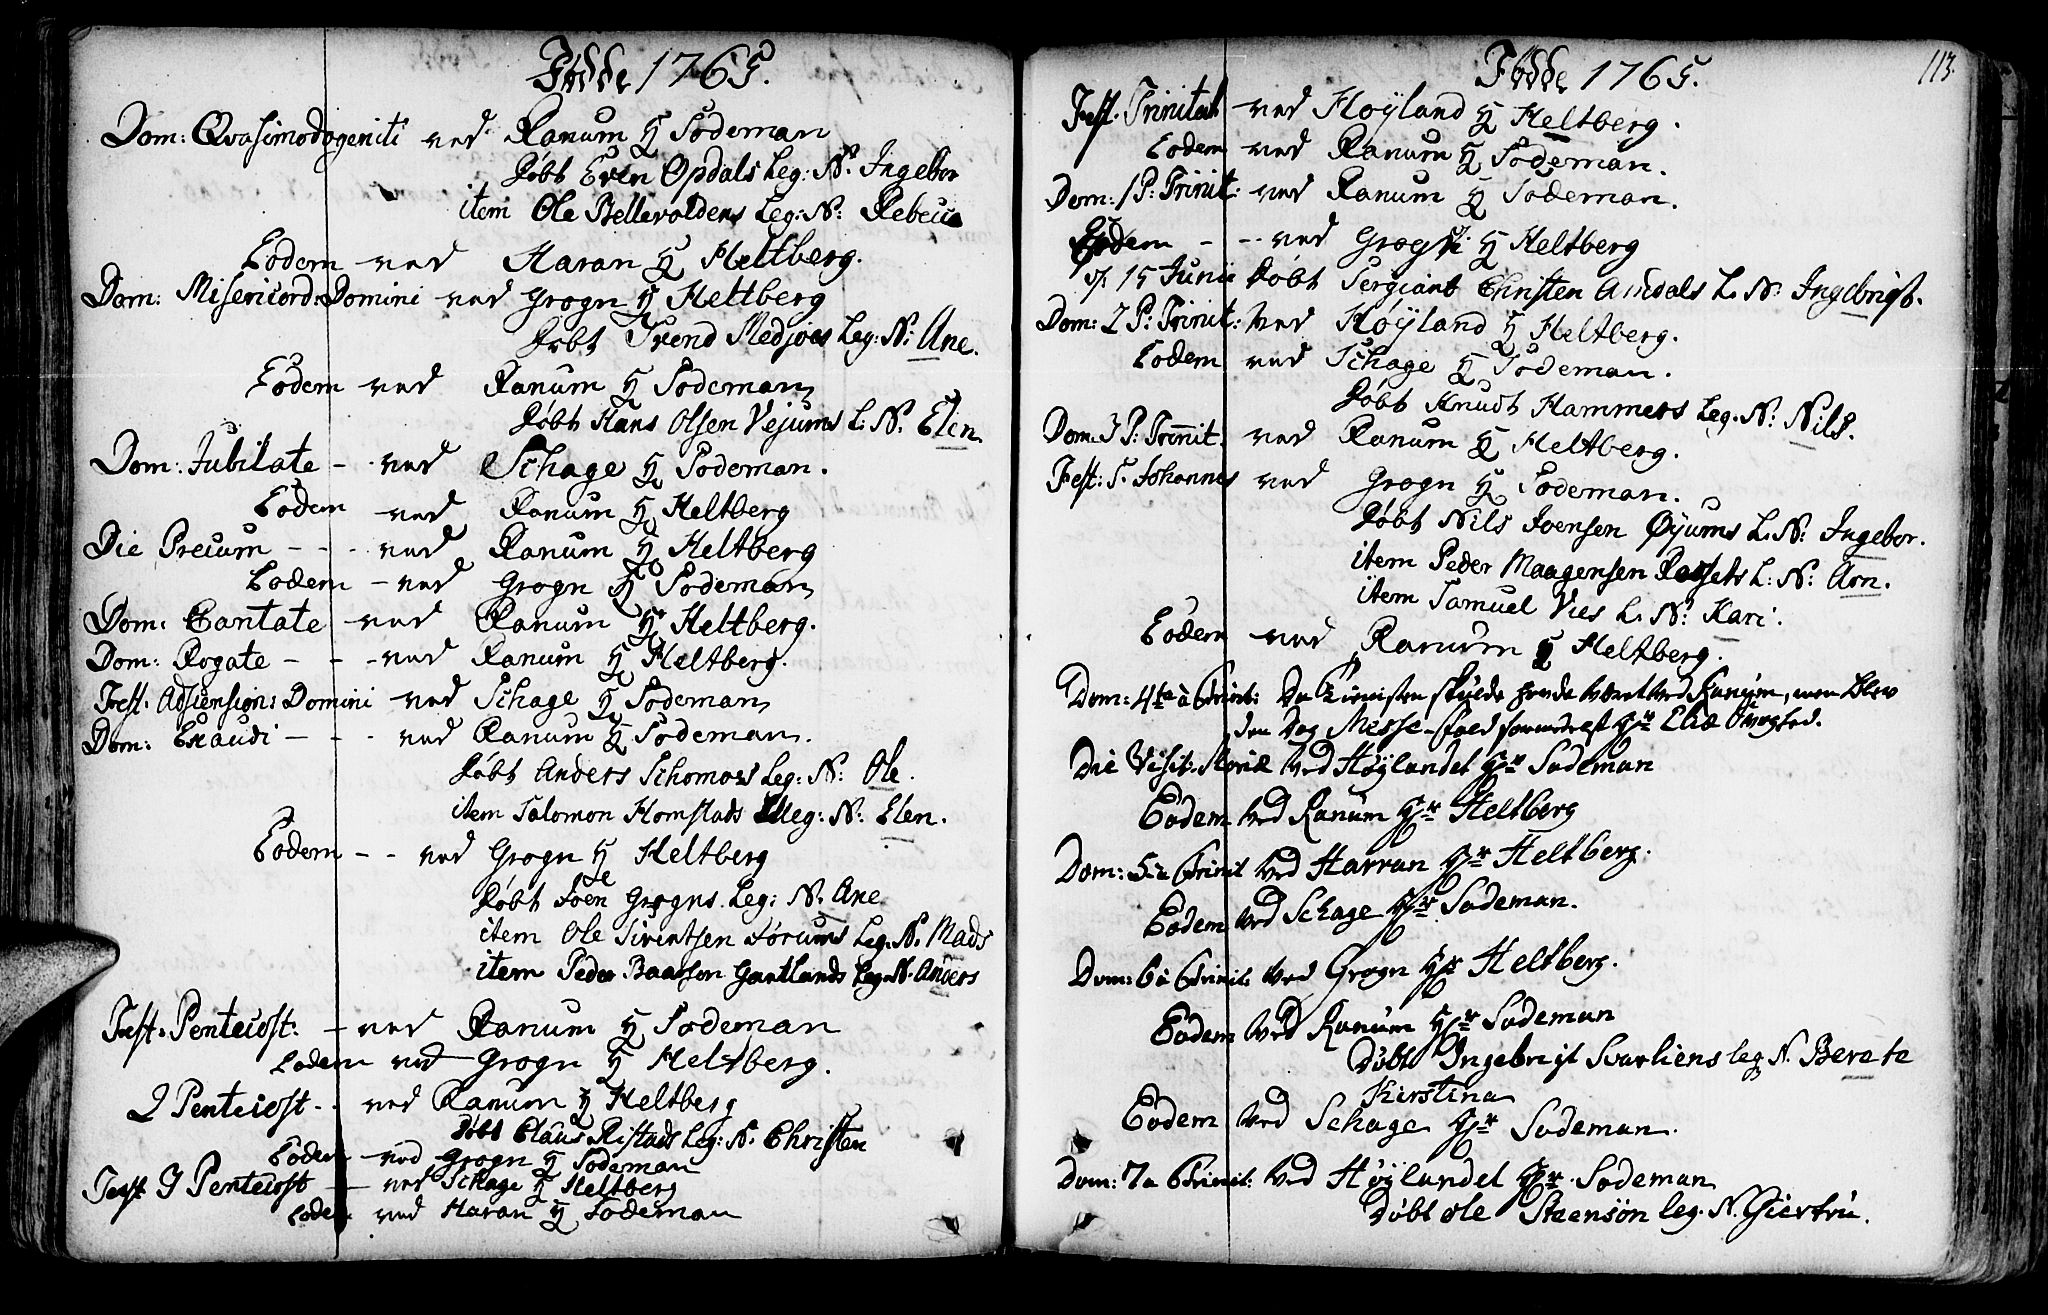 Fødde 1765.
Dom: Qvasimodogeniti ved Ranum H Sodeman
døbt Even Opdals Leg: N: Ingebor
item Ole Bellevoldens Leg: N: Rebecca
Eodem ved Haran H Heltberg.
Dom: Misericord: Domini ved Grogn H Heltberg
døbt Trend Medjoes Leg: N: Ane.
Eodem ved Ranum H Sodeman
døbt Hans Olsen Vejums L: N: Elen
Dom: Jubilate - ved Schage H Sodeman.
Eodem ved Ranum H Heltberg
Die Precum - - - ved Ranum H Heltberg
Eodem - ved Grogn H Sodeman
Dom: Cantate ved Ranum H Heltberg.
Dom: Rogate - - - ved Ranum H Heltberg.
Fest. Adsension: Domini ved Schage H Sodeman
Dom: Exaudi - - - ved Ranum H Sodeman.
døbt Anders Schomoes Leg: N: Ole.
item Salomon Homstads Leg: N: Elen.
Eodem - - ved Grogn H Heltberg
døbt Joen Grogns Leg: N. Ane
item Ole Sivertsen Førums Leg: N. Mads
item Peder Baarsen Gartlands Leg: N. Anders
Fest: Pentecost: - ved Ranum H Sodeman
Eodem ved Grogn H Heltberg.
2 Pentecost - - ved Ranum H Heltberg
døbt Claus Ristads Leg: N. Christen
Eodem - ved Grogn H Sodeman
Fest 3 Pentecost - ved Schage H Heltberg
Eodem ved Haran H Sodeman
113.
Fødde 1765.
Fest. Trinitat ved Høyland H Heltberg.
Eodem ved Ranum H Sodeman.
Dom: 1 P: Trinit: ved Ranum H Sodeman.
Eodem - - ved Grogn H Heltberg
d 15 Junii døbt Sergiant Christen Amdals L. N. Ingebrigt.
Dom: 2 P: Trinit: ved Høyland H Heltberg.
Eodem ved Schage H Sodeman.
døbt Knudt Hammers Leg: N: Nils.
Dom. 3 P: Trinit. ved Ranum H Heltberg.
Fest: S. Johannes ved Grogn H Sodeman.
døbt Nils Joensen Øyums L. N: Ingebor.
item Peder Maagensen L: N: Arn.
item Samuel Vies L. N: Kari.
Eodem ved Ranum H Heltberg.
Dom: 4ta à Trinit: Da Tienisten skulde hende været ved Ranum, men blev
den Dag Messe-fald
Die Visit. Mariæ ved Høylandet Hr Sodeman
Eodem ved Ranum Hr Heltberg
Dom: 5 à Trinit ved Harran Hr Heltberg.
Eodem ved Schage Hr Sodeman.
Dom: 6 à Trinit: ved Grogn Hr Heltberg.
Eodem ved Ranum Hr Sodeman
Døbt Ingebrigt Svarliens leg N. Berete
Kirstina
Eodem ved Schage Hr Sodeman.
Dom: 7 à Trinit: ved Høylandet Hr Sodeman
Døbt Ole Steensøn leg. N. Giertru.